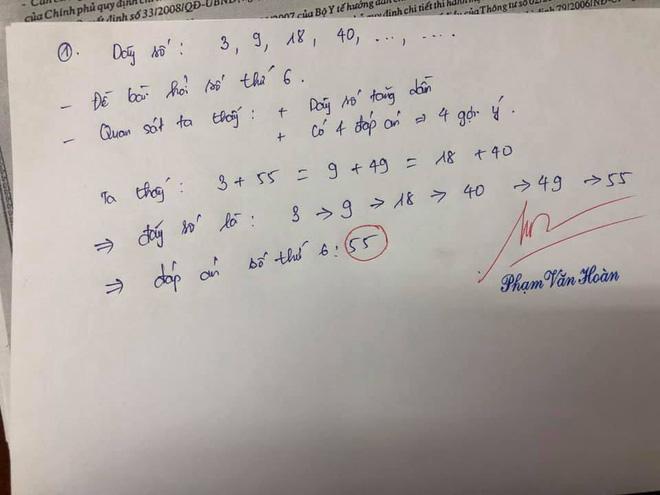 - Căn cứ
của Chính phủ quy định chi
số 33/2008/QĐ-UBND
2007 của Bộ Y tế hướng dẫn
quy định chi tiết thi hành
của Thông tư số 02/2
29/2006/NĐ-C
①. Dãy số : 3, 9, 18, 40, ..., ....
- Đề bài hỏi số thứ 6.
- Quan sát ta thấy : + Dãy số tăng dần
+ Có 4 đáp án => 4 gợi ý.
Ta thấy : 3 + 55 = 9 + 49 = 18 + 40
=> dãy số là : 3 → 9 → 18 → 40 → 49 → 55
=> đáp án số thứ 6 : 55
Phạm Văn Hoàn